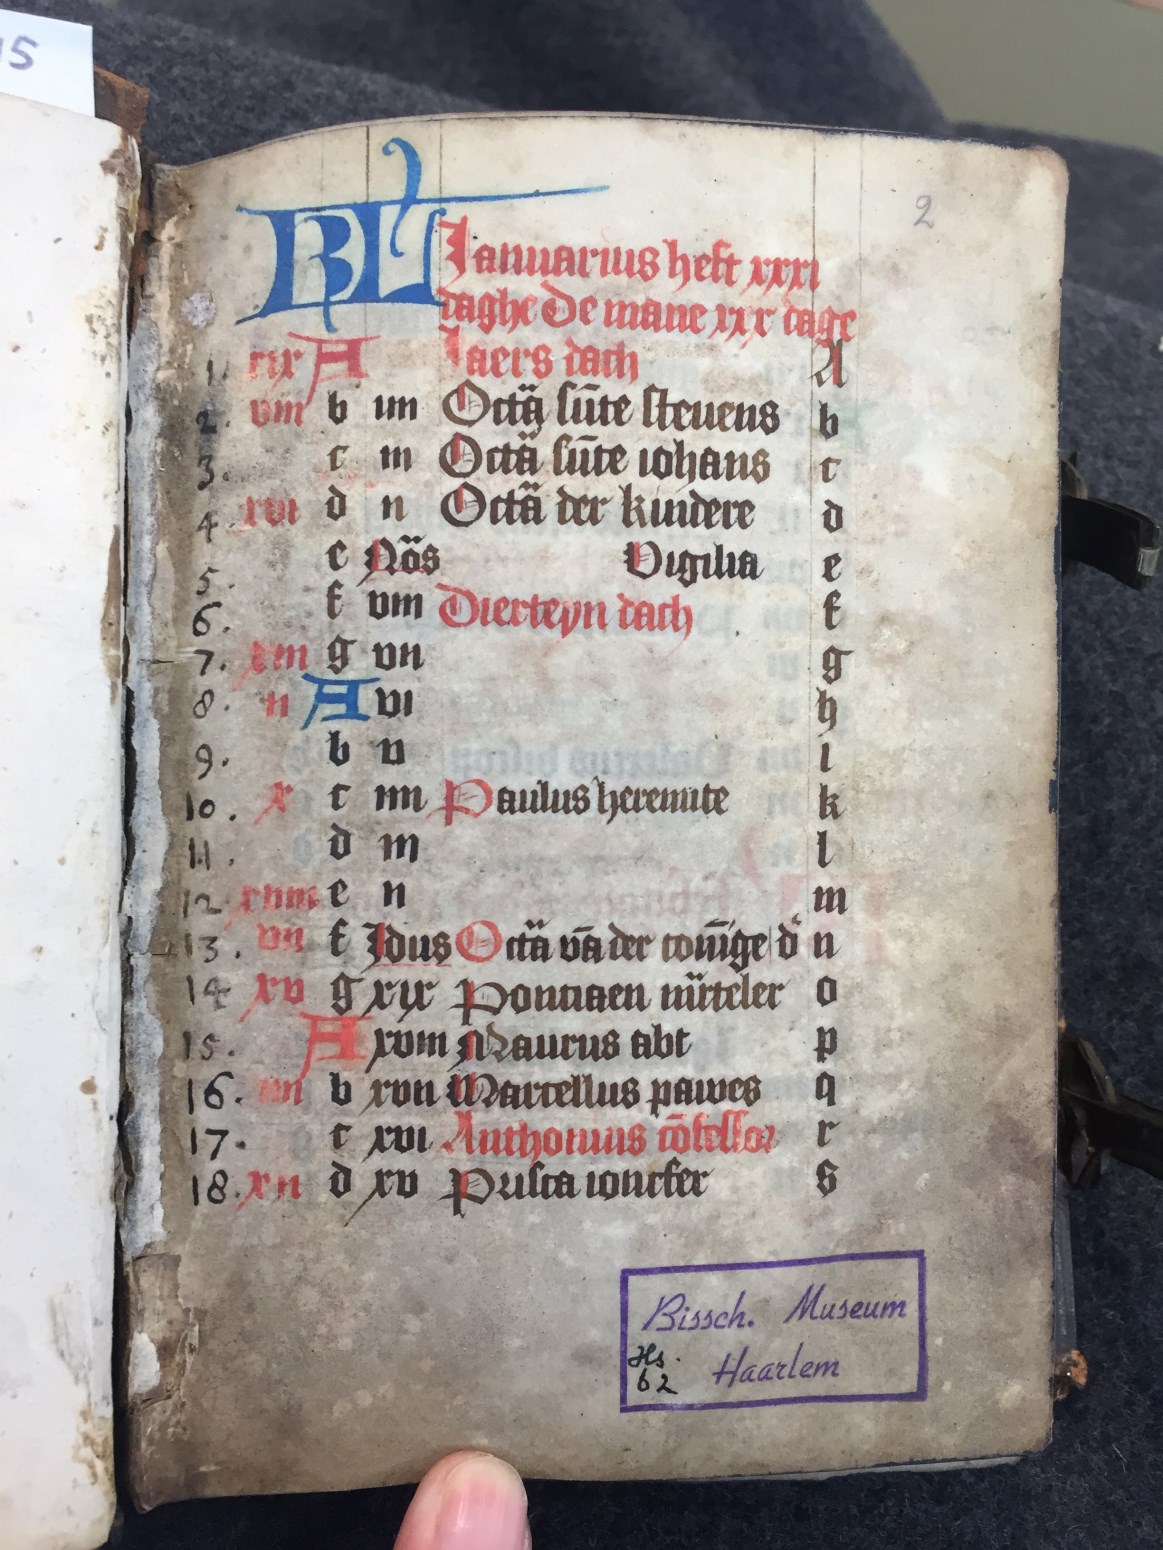 15
2
KL Ianuarius heft xxxi
daghe De mane xxx dage
1. xix A Iaers dach A
2. viii b iiii Octa᷑ sūte steuens b
3. c iii Octa᷑ sūte iohans c
4. xvi d ii Octa᷑ der kindere d
5. e Nōs Vigilia e
6. f viii Dierteyn dach f
7. xiii g vii g
8. ii A vi h
9. b v i
10. x c iiii Paulus heremite k
11. d iii l
12. xviii e ii m
13. vii f Idus Octa᷑ vā der coni̅ge d᷑ n
14 xv g xix Ponciaen m̄rteler o
15. A xviii Maurus abt p
16. iiii b xvii Marcellus pawes q
17. c xvi Anthonius cōfessor r
18. xii d xv Prisca ioncfer s
Bissch. Museum
Haarlem
Hs.
62